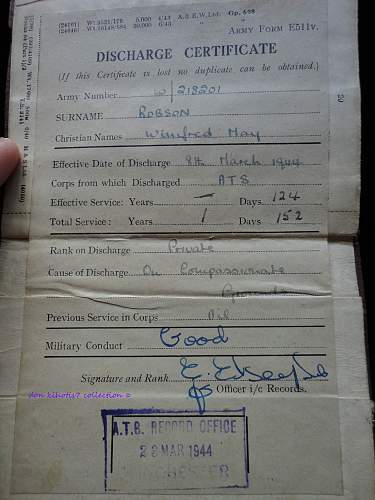 (26161) Wt.3521/178 5,000 4/43 A.& E.W.Ltd. Gp. 698
Army Form E511v.
DISCHARGE CERTIFICATE
(If this Certificate is lost no duplicate can be obtained.)
Army Number W/218201
SURNAME ROBSON
Christian Names Winifred May
Effective Date of Discharge 8th March 1944
Corps from which Discharged ATS
Effective Service: Years — Days 124
Total Service: Years 1 Days 152
Rank on Discharge Private
Cause of Discharge On Compassionate
Grounds
Previous Service in Corps Nil
Military Conduct Good
Signature and Rank
Officer i/c Records.
don kihotis7 collection ©
A.T.S. RECORD OFFICE
MAR 1944